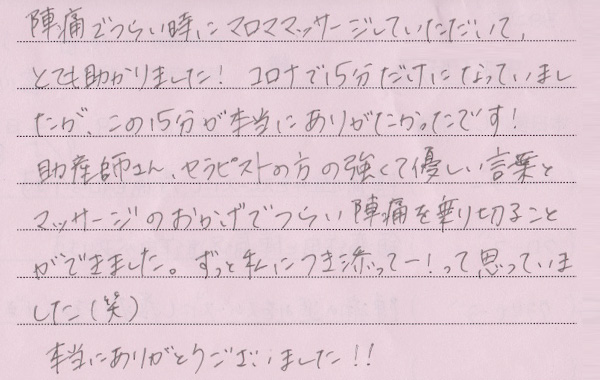 陣痛でつらい時にマロママッサージしていただいて、
とても助かりました！ コロナで15分だけになっていまし
たが、この15分が本当にありがたかったです！
助産師さん、セラピストの方の強くて優しい言葉と
マッサージのおかげでつらい陣痛を乗り切ること
ができました。ずっと私につき添ってー！って思っていま
した（笑）
本当にありがとうございました！！